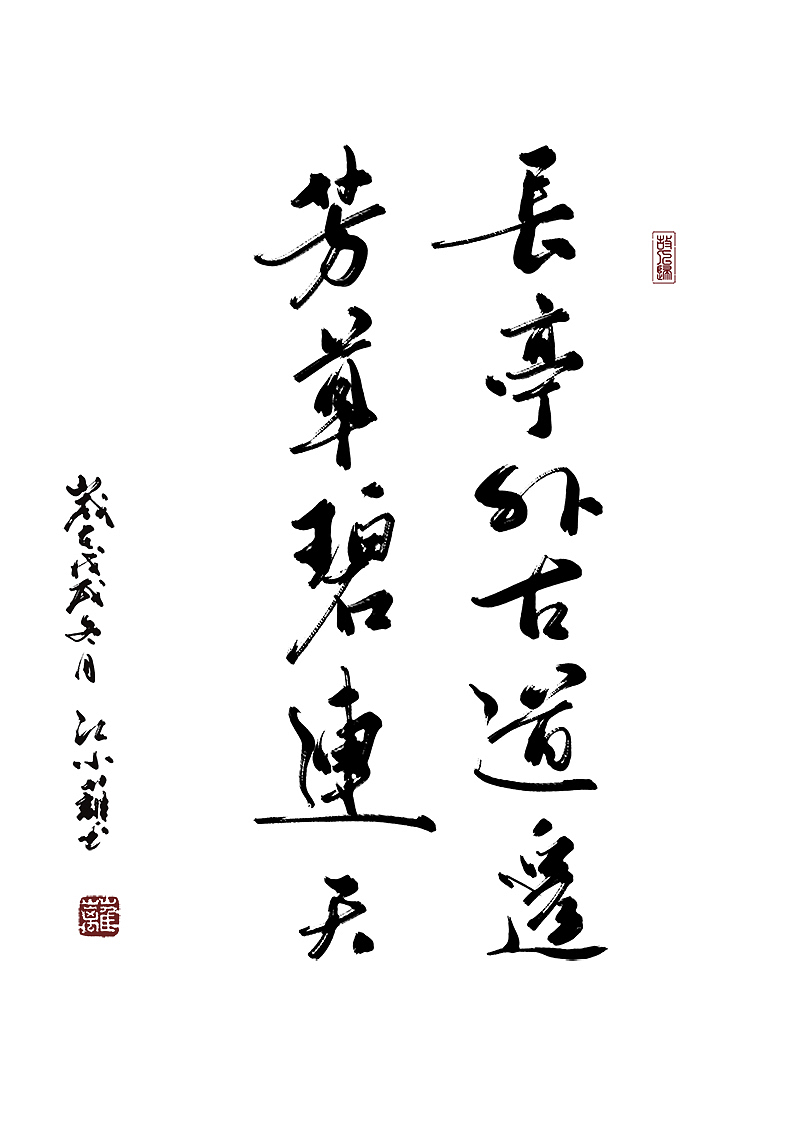 長亭外古道邊
芳草碧連天
歲在戊戌冬月 江小蘺書
蘺